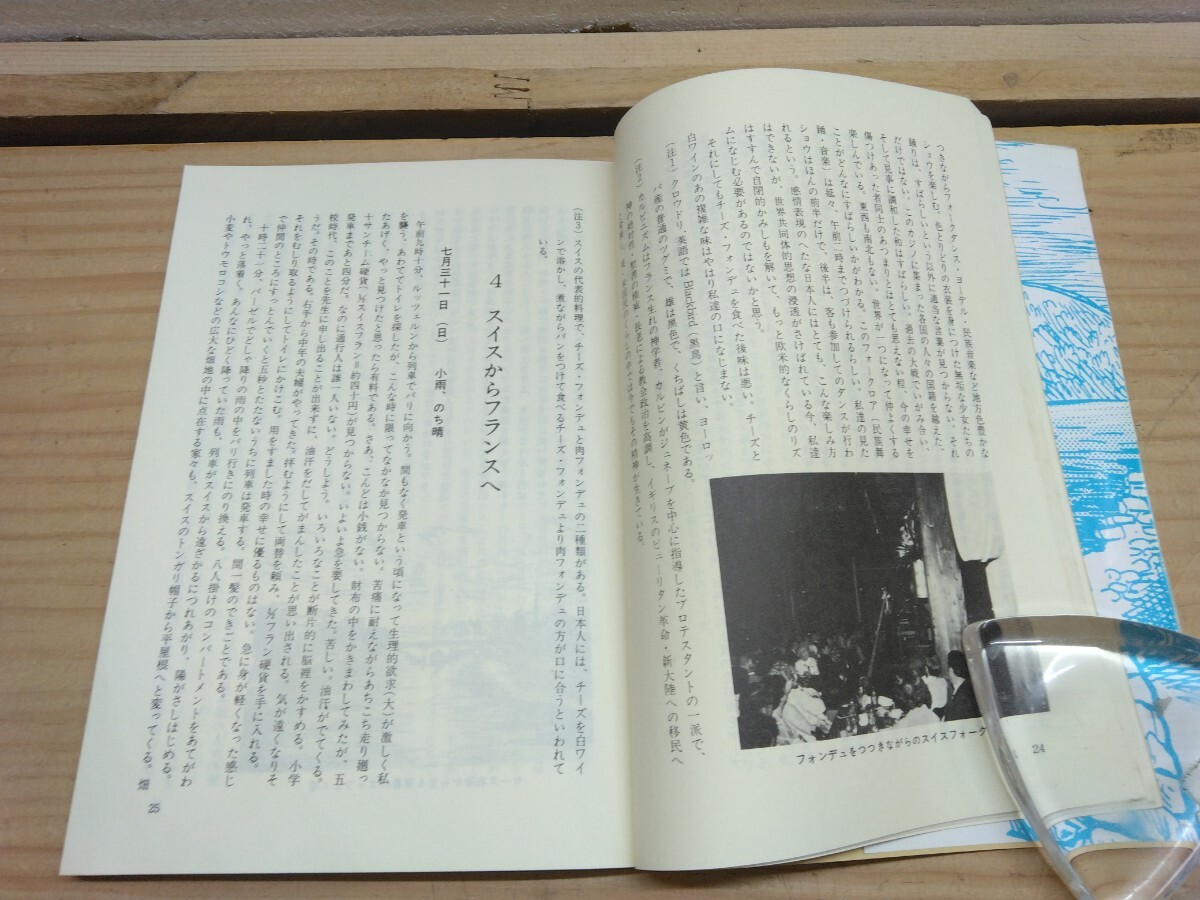 つきながらフォークダンス・ヨーデル・民族音楽など地方色豊かな
ショウを楽しむ。色とりどりの衣装を身につけた無垢な少女たちの
踊りは、すばらしいという以外に適当な言葉が見つからない。それ
だけではない。このカジノに集まった各国の人々の国籍を越えた、
そして見事に調和した和はすばらしい。過去の大戦でいがみ合い、
傷つけあった者同士のあつまりとはとても思えない程、今の幸せを
楽しんでいる。東西も南北もない。世界が一つになって仲よくする
ことがどんなにすばらしいかがわかる。このフォークロア(民族舞
踊・音楽)は延々、午前二時までつづけられるらしい。私達の見た
ショウはほんの前半だけで、後半は、客も参加してのダンスが行わ
れるという。感情表現のへたな日本人にはとても、こんな楽しみ方
はできないが、世界共同体的思想の浸透がさけばれている今、私達
はすすんで自閉的かみしもを解いて、もっと欧米的なくらしのリズ
ムになじむ必要があるのではないかと思う。
それにしてもチーズ・フォンデュを食べた後味は悪い。チーズと
白ワインのあの複雑な味はやはり私達の口になじまない。
(注1) クロウドリ、英語では Blackbird (黒鳥) と言い、ヨーロッ
パ産の普通のツグミで、雄は黒色で、くちばしは黄色である。
(注2) カルビニズムはフランス生れの神学者、カルビンがジュネーブを中心に指導したプロテスタントの一派で、
神の絶対性・聖書の権威・長老による教会政治を高調し、イギリスのピューリタン革命・新大陸への移民へ
フォンデュをつつきながらのスイスフォーク
24
(注3) スイスの代表的料理で、チーズ・フォンデュと肉フォンデュの二種類がある。日本人には、チーズを白ワイ
ンで溶かし、煮ながらパンをつけて食べるチーズ・フォンデュより肉フォンデュの方が口に合うといわれて
いる。
4 スイスからフランスへ
七月三十一日 (日) 小雨、のち晴
午前九時十分、ルッツェルンから列車でパリに向かう。間もなく発車という頃になって生理的欲求(大)が激しく私
を襲う。あわててトイレを探したが、こんな時に限ってなかなか見つからない。苦痛に耐えながらあちこち走り廻っ
たあげく、やっと見つけたと思ったら有料である。さあ、こんどは小銭がない。財布の中をかきまわしてみたが、五
十サンチーム硬貨(½スイスフラン=約四十円)が見つからない。いよいよ急を要してきた。苦しい。油汗がでてくる。
発車まであと四分だ。なのに通行人は誰一人いない。どうしよう。いろいろなことが断片的に脳裡をかすめる。小学
校時代、このことを先生に申し出ることが出来ずに、油汗をだしてがまんしたことが思い出される。気が遠くなりそ
うだ。その時である。右手から中年の夫婦がやってきた。拝むようにして両替を頼み、½フラン硬貨を手に入れる。
それをむしり取るようにしてトイレにかけこむ。用をすました時の幸せに優るものはない。急に身が軽くなった感じ
で仲間のところにすっとんでいくと五秒とたたないうちに列車は発車する。間一髪のできごとである。
十時二十一分、バーゼルでどしゃ降りの雨の中をパリ行きにのり換える。八人掛けのコンパートメントをあてがわ
れ、やっと落着く。あんなにひどく降っていた雨も、列車がスイスから遠ざかるにつれあがり、陽がさしはじめる。
小麦やトウモロコシなどの広大な畑地の中に点在する家々も、スイスのトンガリ帽子から平屋根へと変ってくる。畑
25